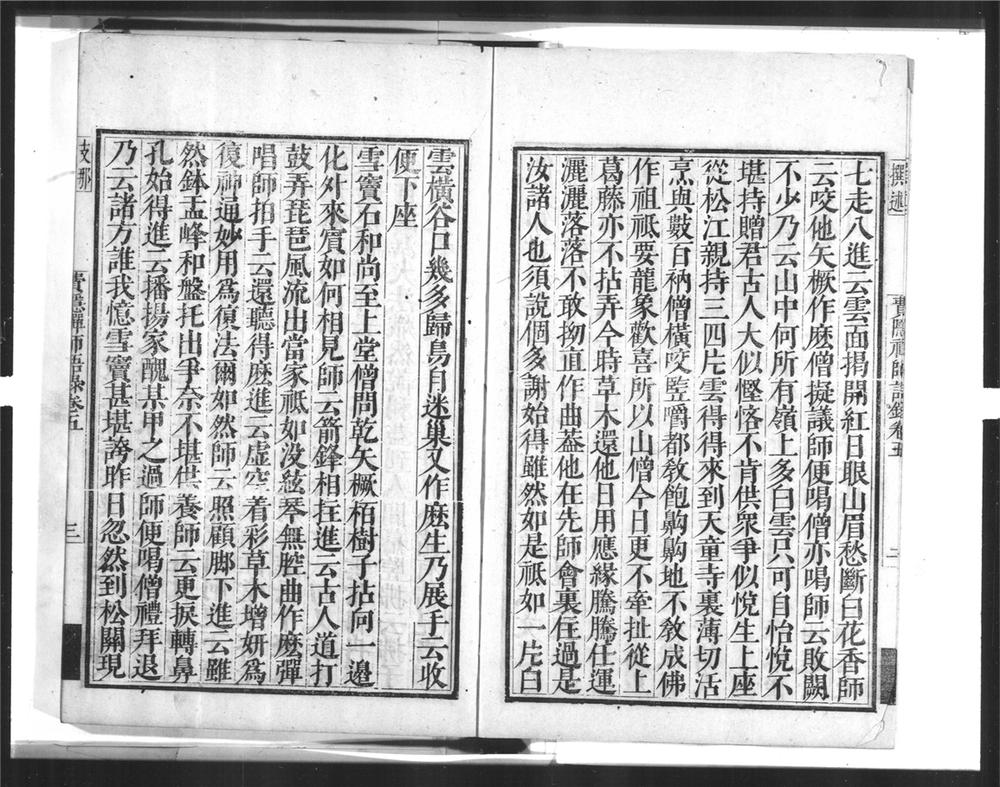 撰述
費隱禪師語錄卷五
二
七走八進云雲面揭開紅日眼山眉愁斷白花香師
云咬他矢橛作麽僧擬議師便喝僧亦喝師云敗闕
不少乃云山中何所有嶺上多白雲只可自怡悅不
堪持贈君古人大似慳悋不肯供眾爭似悅生上座
從松江親持三四片雲得得來到天童寺裏薄切活
烹與數百衲僧橫咬豎嚼都教飽齁齁地不敘成佛
作祖祗要龍象歡喜所以山僧今日更不牽扯從上
葛藤亦不拈弄今時草木還他日用應緣騰騰任運
灑灑落落不敢拗直作曲葢他在先師會裏住過是
汝諸人也須說個多謝始得雖然如是祗如一片白
雲橫谷口幾多歸鳥月迷巢又作麽生乃展手云收
便下座
雪竇石和尚至上堂僧問乾矢橛栢樹子拈向一邉
化外來賓如何相見師云箭鋒相拄進云古人道打
鼓弄琵琶風流出當家祗如没絃琴無腔曲作麽彈
唱師拍手云還聽得麽進云虛空着彩草木增妍爲
復神通妙用爲復法爾如然師云照顧脚下進云雖
然鉢盂峰和盤托出爭奈不堪供養師云更捩轉鼻
孔始得進云播揚家醜某甲之過師便喝僧禮拜退
乃云諸方誰我憶雪竇甚堪誇昨日忽然到松關現
支那
費隱禪師語录卷五
三